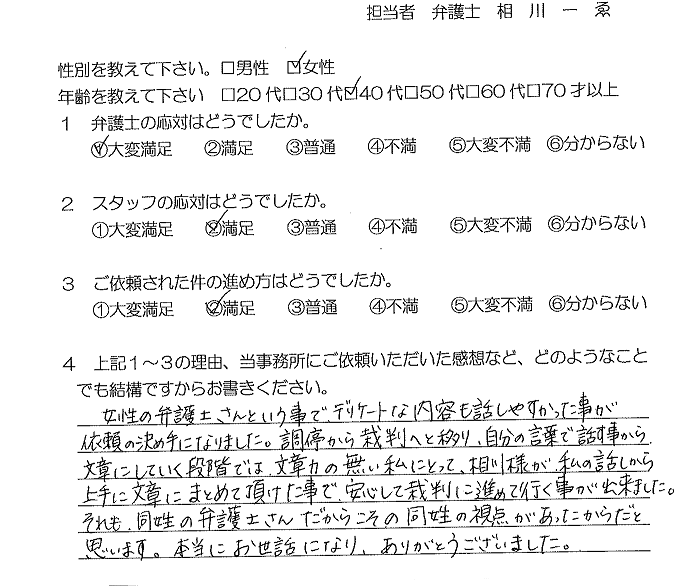 担当者 弁護士 相 川 一 ゑ
性別を教えて下さい。□男性 ☑女性
年齢を教えて下さい □20代□30代☑40代□50代□60代□70才以上
1 弁護士の応対はどうでしたか。
①大変満足 ②満足 ③普通 ④不満 ⑤大変不満 ⑥分からない
2 スタッフの応対はどうでしたか。
①大変満足 ②満足 ③普通 ④不満 ⑤大変不満 ⑥分からない
3 ご依頼された件の進め方はどうでしたか。
①大変満足 ②満足 ③普通 ④不満 ⑤大変不満 ⑥分からない
4 上記1〜3の理由、当事務所にご依頼いただいた感想など、どのようなこと
でも結構ですからお書きください。
女性の弁護士さんという事で、デリケートな内容も話しやすかった事が
依頼の決め手になりました。調停から裁判へと移り、自分の言葉で話す事から
文章にしていく段階では、文章力の無い私にとって、相川様が、私の話しから
上手に文章にまとめて頂けた事で、安心して裁判に進めて行く事が出来ました。
それも、同姓の弁護士さんだからこその同姓の視点があったからだと
思います。本当にお世話になり、ありがとうございました。